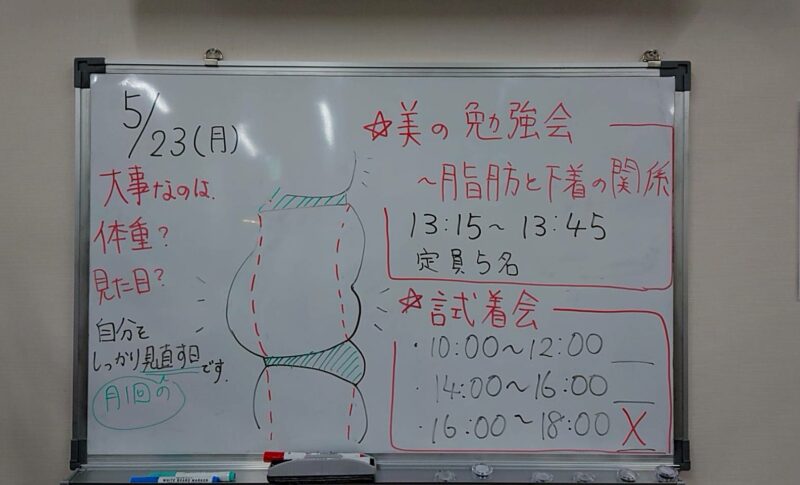 5/23(月)
大事なのは、
体重?
見た目?
自分を
しっかり見直す日です。
月1回の
☆美の勉強会
~脂肪と下着の関係
13:15~13:45
定員5名
☆試着会
・10:00~12:00
・14:00~16:00
・16:00~18:00 X
WHITE BOARD MARKER